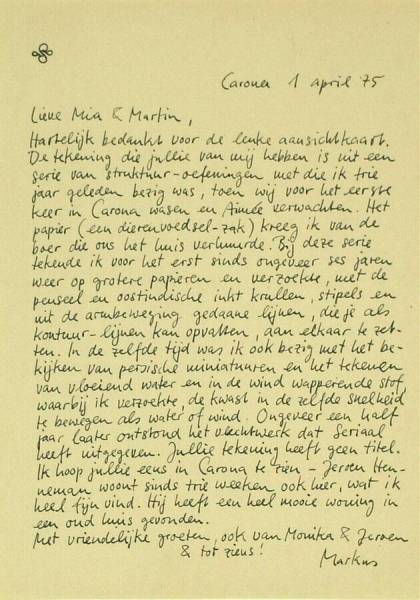 Carona 1 april 75
Lieve Mia & Martin,
Hartelijk bedankt voor de leuke aansichtkaart.
De tekening die jullie van mij hebben is uit een
serie van struktuur-oefeningen met die ik trie
jaar geleden bezig was, toen wij voor het eerste
keer in Carona wasen en Aimée verwachten. Het
papier (een dierenvoedsel-zak) kreeg ik van de
boer die ons het huis verhuurde. Bij deze serie
tekende ik voor het erst sinds ongeveer ses jaren
weer op grotere papieren en verzoekte, met de
penseel en oostindische inkt krullen, stipels en
uit de armbeweging gedaane lijnen, die je als
kontuur-lijnen kan opvatten, aan elkaar te zet-
ten. In de zelfde tijd was ik ook bezig met het be-
kijken van persische miniaturen en het tekenen
van vloeiend water en in de wind wapperende stof,
waarbij ik verzoekte, de kwast in de zelfde snelheid
te bewegen als water of wind. Ongeveer een half
jaar laater ontstond het vlechtwerk dat Seriaal
heeft uitgegeven. Jullie tekening heeft geen titel.
Ik hoop jullie eens in Carona te zien – Jeroen Hen-
neman woont sinds trie weeken ook hier, wat ik
heel fijn vind. Hij heeft een heel mooie woning in
een oud huis gevonden.
Met vriendelijke groeten, ook van Monika & Jeroen
& tot ziens!
Markus